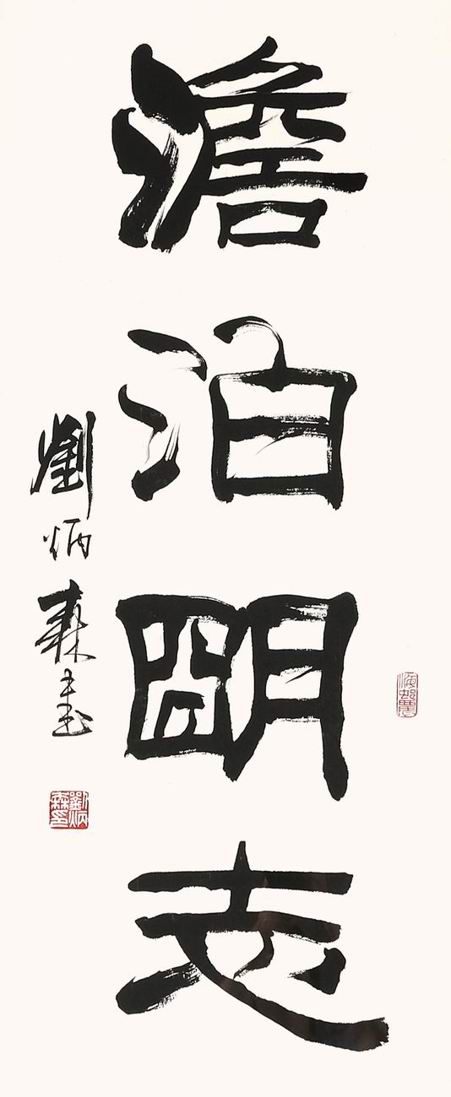 澹泊朙志
劉炳森書
劉炳森印